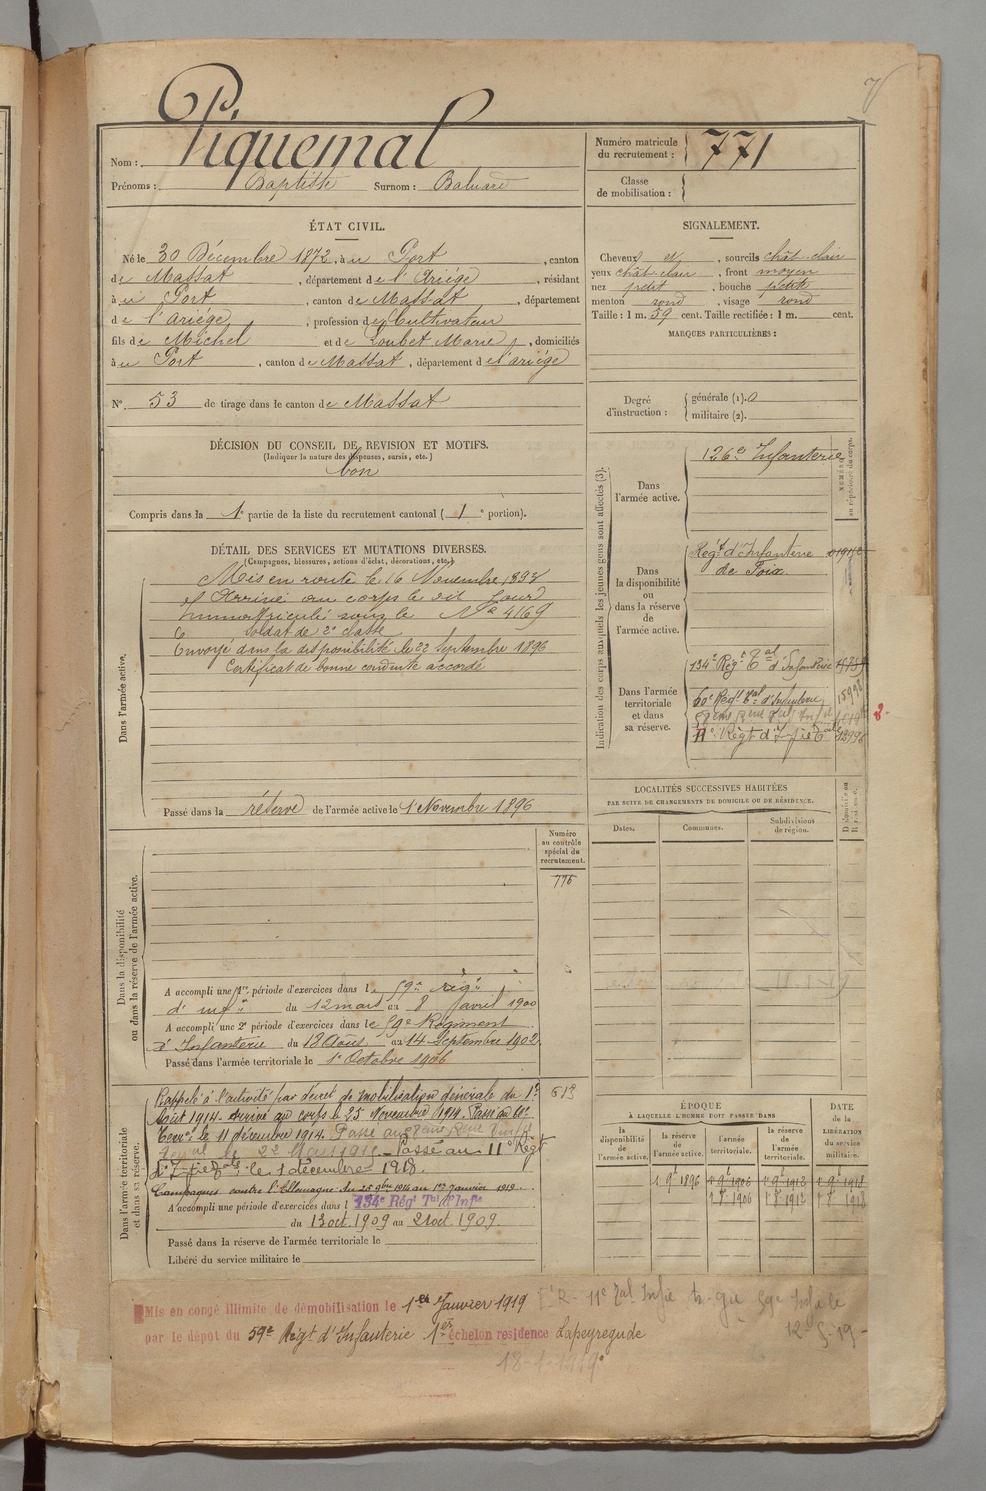 Piquemal
Nom :
Prénoms : Baptiste Surnom : Baluard
Numéro matricule du recrutement : 771
Classe de mobilisation :
ÉTAT CIVIL.
Né le 30 Décembre 1872, à u Port, canton
de Massat, département de l'Ariége, résidant
à u Port, canton de Massat, département
de l'Ariége, profession de Cultivateur
fils de Michel et de Loubet Marie, domiciliés
à u Port, canton de Massat, département de l'ariége
N° 53 de tirage dans le canton de Massat
DÉCISION DU CONSEIL DE REVISION ET MOTIFS.
(Indiquer la nature des dispenses, sursis, etc.)
bon
Compris dans la 1e partie de la liste du recrutement cantonal (1e portion).
SIGNALEMENT.
Cheveux et, sourcils chât clair
yeux chât clair, front moyen
nez petit, bouche petite
menton rond, visage rond
Taille : 1 m. 59 cent. Taille rectifiée : 1 m. cent.
MARQUES PARTICULIÈRES :
Degré d'instruction : générale (1). 0
militaire (2).
DÉTAIL DES SERVICES ET MUTATIONS DIVERSES.
(Campagnes, blessures, actions d'éclat, décorations, etc.)
Dans l'armée active.
Mis en route le 16 Novembre 1893
et Arrivé au corps le dit Jour
Immatriculé sous le N° 4169
soldat de 2e classe
Envoyé dans la disponibilité le 22 Septembre 1896
Certificat de bonne conduite accordé
Passé dans la réserve de l'armée active le 1 Novembre 1896
Indication des corps auxquels les jeunes gens sont affectés (3).
Dans l'armée active.
126e Infanterie
Dans la disponibilité ou dans la réserve de l'armée active.
Régt d'Infanterie
de Foix.
Dans l'armée territoriale et dans sa réserve.
134e Régt Tal d'Infanterie
60e Régt Tal d'Infanterie
11e Régt d'Infie Tale
Numéro au contrôle spécial du recrutement.
776
Dans la disponibilité ou dans la réserve de l'armée active.
A accompli une 1re période d'exercices dans le 59e régt
d'infie du 12 mars au 8 avril 1900
A accompli une 2e période d'exercices dans le 59e Régiment
d'Infanterie du 18 Août au 14 Septembre 1902
Passé dans l'armée territoriale le 1er Octobre 1906
LOCALITÉS SUCCESSIVES HABITÉES
PAR SUITE DE CHANGEMENTS DE DOMICILE OU DE RÉSIDENCE.
Dates. Communes. Subdivisions de région.
Dans l'armée territoriale et dans sa réserve.
613
Rappelé à l'activité par décret de mobilisation générale du 1er
Août 1914. Arrivé au corps le 25 Novembre 1914. Passé au 60e
Terral le 11 décembre 1914. Passé au
Passé au 11e Régt
d'Infie Tale le 1 décembre 1918.
Campagnes contre l'Allemagne du 25 9bre 1914 au 1er Janvier 1919.
A accompli une période d'exercices dans l 134e Régt Tal d'Infie
du 13 oct. 1909 au 21 oct. 1909.
Passé dans la réserve de l'armée territoriale le
Libéré du service militaire le
ÉPOQUE
À LAQUELLE L'HOMME DOIT PASSER DANS
la disponibilité de l'armée active.
la réserve de l'armée active.
l'armée territoriale.
la réserve de l'armée territoriale.
DATE de la LIBÉRATION du service militaire.
Mis en congé illimité de démobilisation le 1er Janvier 1919
par le dépôt du 59e Régt d'Infanterie 1er échelon residence Lapeyregude
18-1-1919